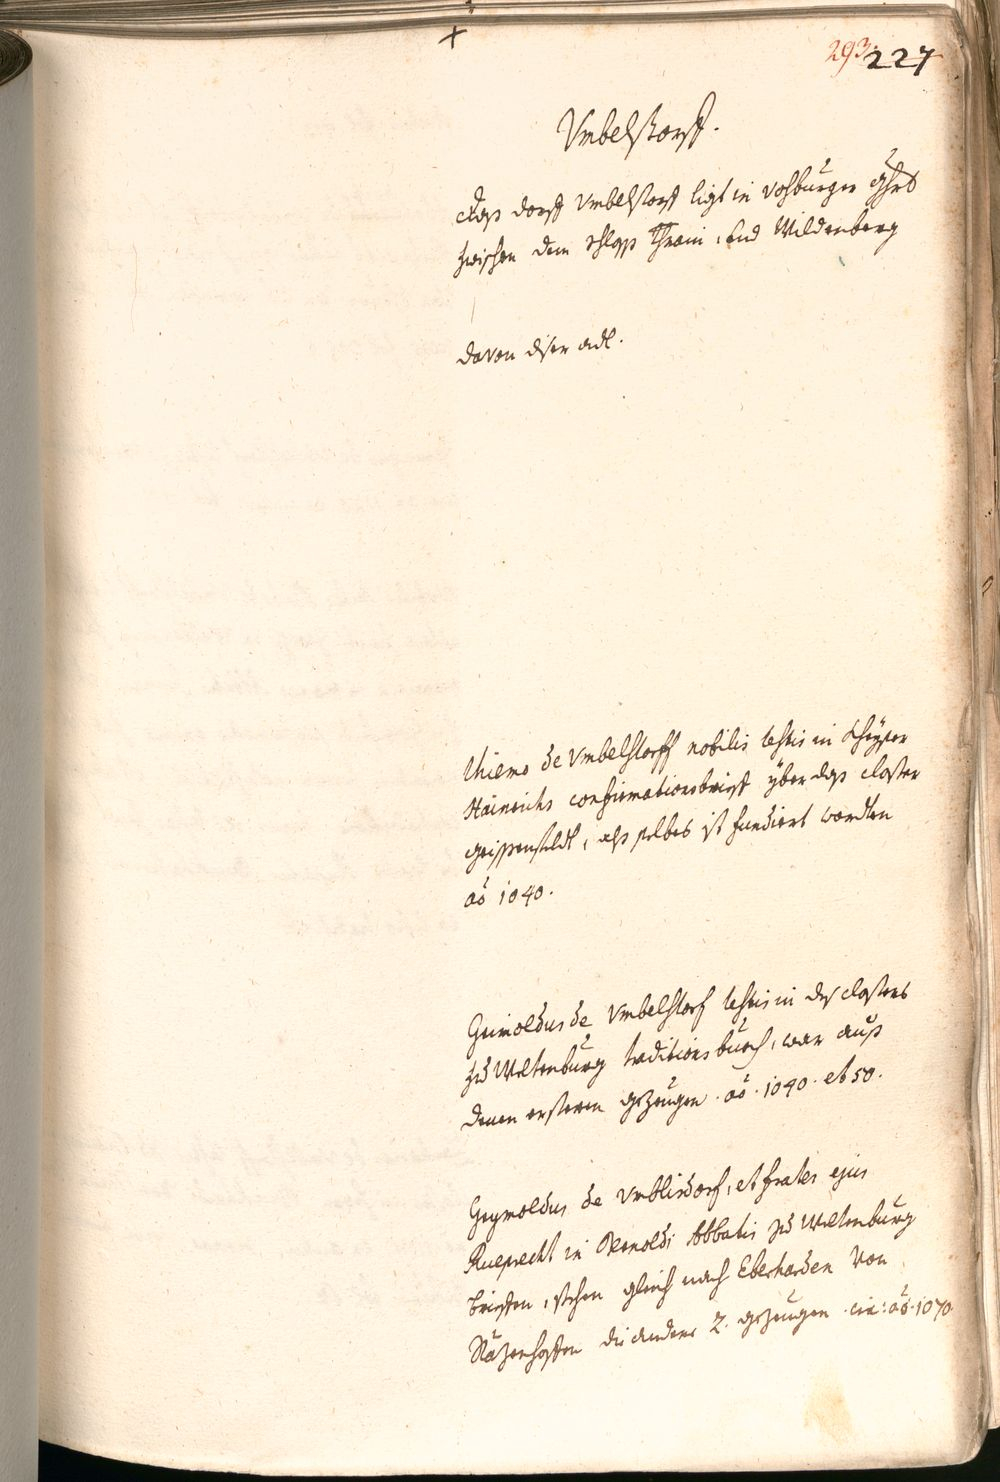 293. 227
Vmbelstorff.
dass dorff Vmbelstorff ligt in Vohburger ghrt
zwischen dem schloss Train, und Wildenberg
davon diser adl.
Thiemo de Vmbelstorff nobilis testis in Kheyser
Hainrichs confirmationsbrieff yber dass closter
Geissenfeldt, alss selbes ist fundiert worden
ao 1040.
Grimoldus de Vmbelstorf testis in dess closters
zu Weltenburg traditionsbuech, war auss
denen ersteren gezeugen. ao. 1040. et 50.
Grymoldus de Vmblisdorf, et frater ejus
Rueprecht in Arnoldi Abbatis zu Weltenburg
brieffen, stehen gleich nach Eberharden Von
Räzenhoffen die andere 2. gezeugen. cir: ao. 1070